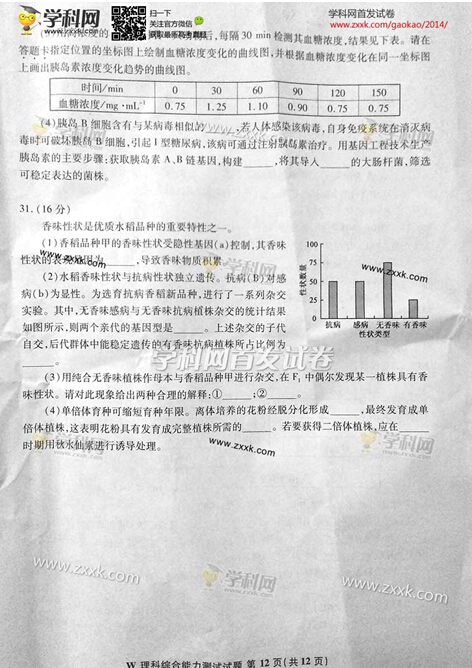 学科网
www.zxxk.com
扫一扫
关注官方微信
获取最新高考资料
学科网首发试卷
www.zxxk.com/gaokao/2014/
后,每隔 30 min 检测其血糖浓度,结果见下表。请在
答题卡指定位置的坐标图上绘制血糖浓度变化的曲线图,并根据血糖浓度变化在同一坐标图
上画出胰岛素浓度变化趋势的曲线图。
时间/min 0 30 60 90 120 150
血糖浓度/mg·mL⁻¹ 0.75 1.25 1.10 0.90 0.75 0.75
(4)胰岛 B 细胞含有与某病毒相似的____,若人体感染该病毒,自身免疫系统在消灭病
毒时可破坏胰岛 B 细胞,引起Ⅰ型糖尿病,该病可通过注射胰岛素治疗。用基因工程技术生产
胰岛素的主要步骤:获取胰岛素 A、B 链基因,构建____,将其导入____的大肠杆菌,筛选
可稳定表达的菌株。
31. (16 分)
香味性状是优质水稻品种的重要特性之一。
(1)香稻品种甲的香味性状受隐性基因(a)控制,其香味
性状的表现是因为____,导致香味物质积累。
(2)水稻香味性状与抗病性状独立遗传。抗病(B)对感
病(b)为显性。为选育抗病香稻新品种,进行了一系列杂交
实验。其中,无香味感病与无香味抗病植株杂交的统计结果
如图所示,则两个亲代的基因型是____。上述杂交的子代
自交,后代群体中能稳定遗传的有香味抗病植株所占比例为
____。
性状数量
100
75
50
25
0
抗病 感病 无香味 有香味
性状类型
(3)用纯合无香味植株作母本与香稻品种甲进行杂交,在 F₁ 中偶尔发现某一植株具有香
味性状。请对此现象给出两种合理的解释:①____;②____。
(4)单倍体育种可缩短育种年限。离体培养的花粉经脱分化形成____,最终发育成单
倍体植株,这表明花粉具有发育成完整植株所需的____。若要获得二倍体植株,应在____
时期用秋水仙素进行诱导处理。
学科网
www.zxxk.com
学科网首发试卷
www.zxxk.com
www.zxxk.com
学科网
www.zxxk.com
W 理科综合能力测试试题 第 12 页(共 12 页)